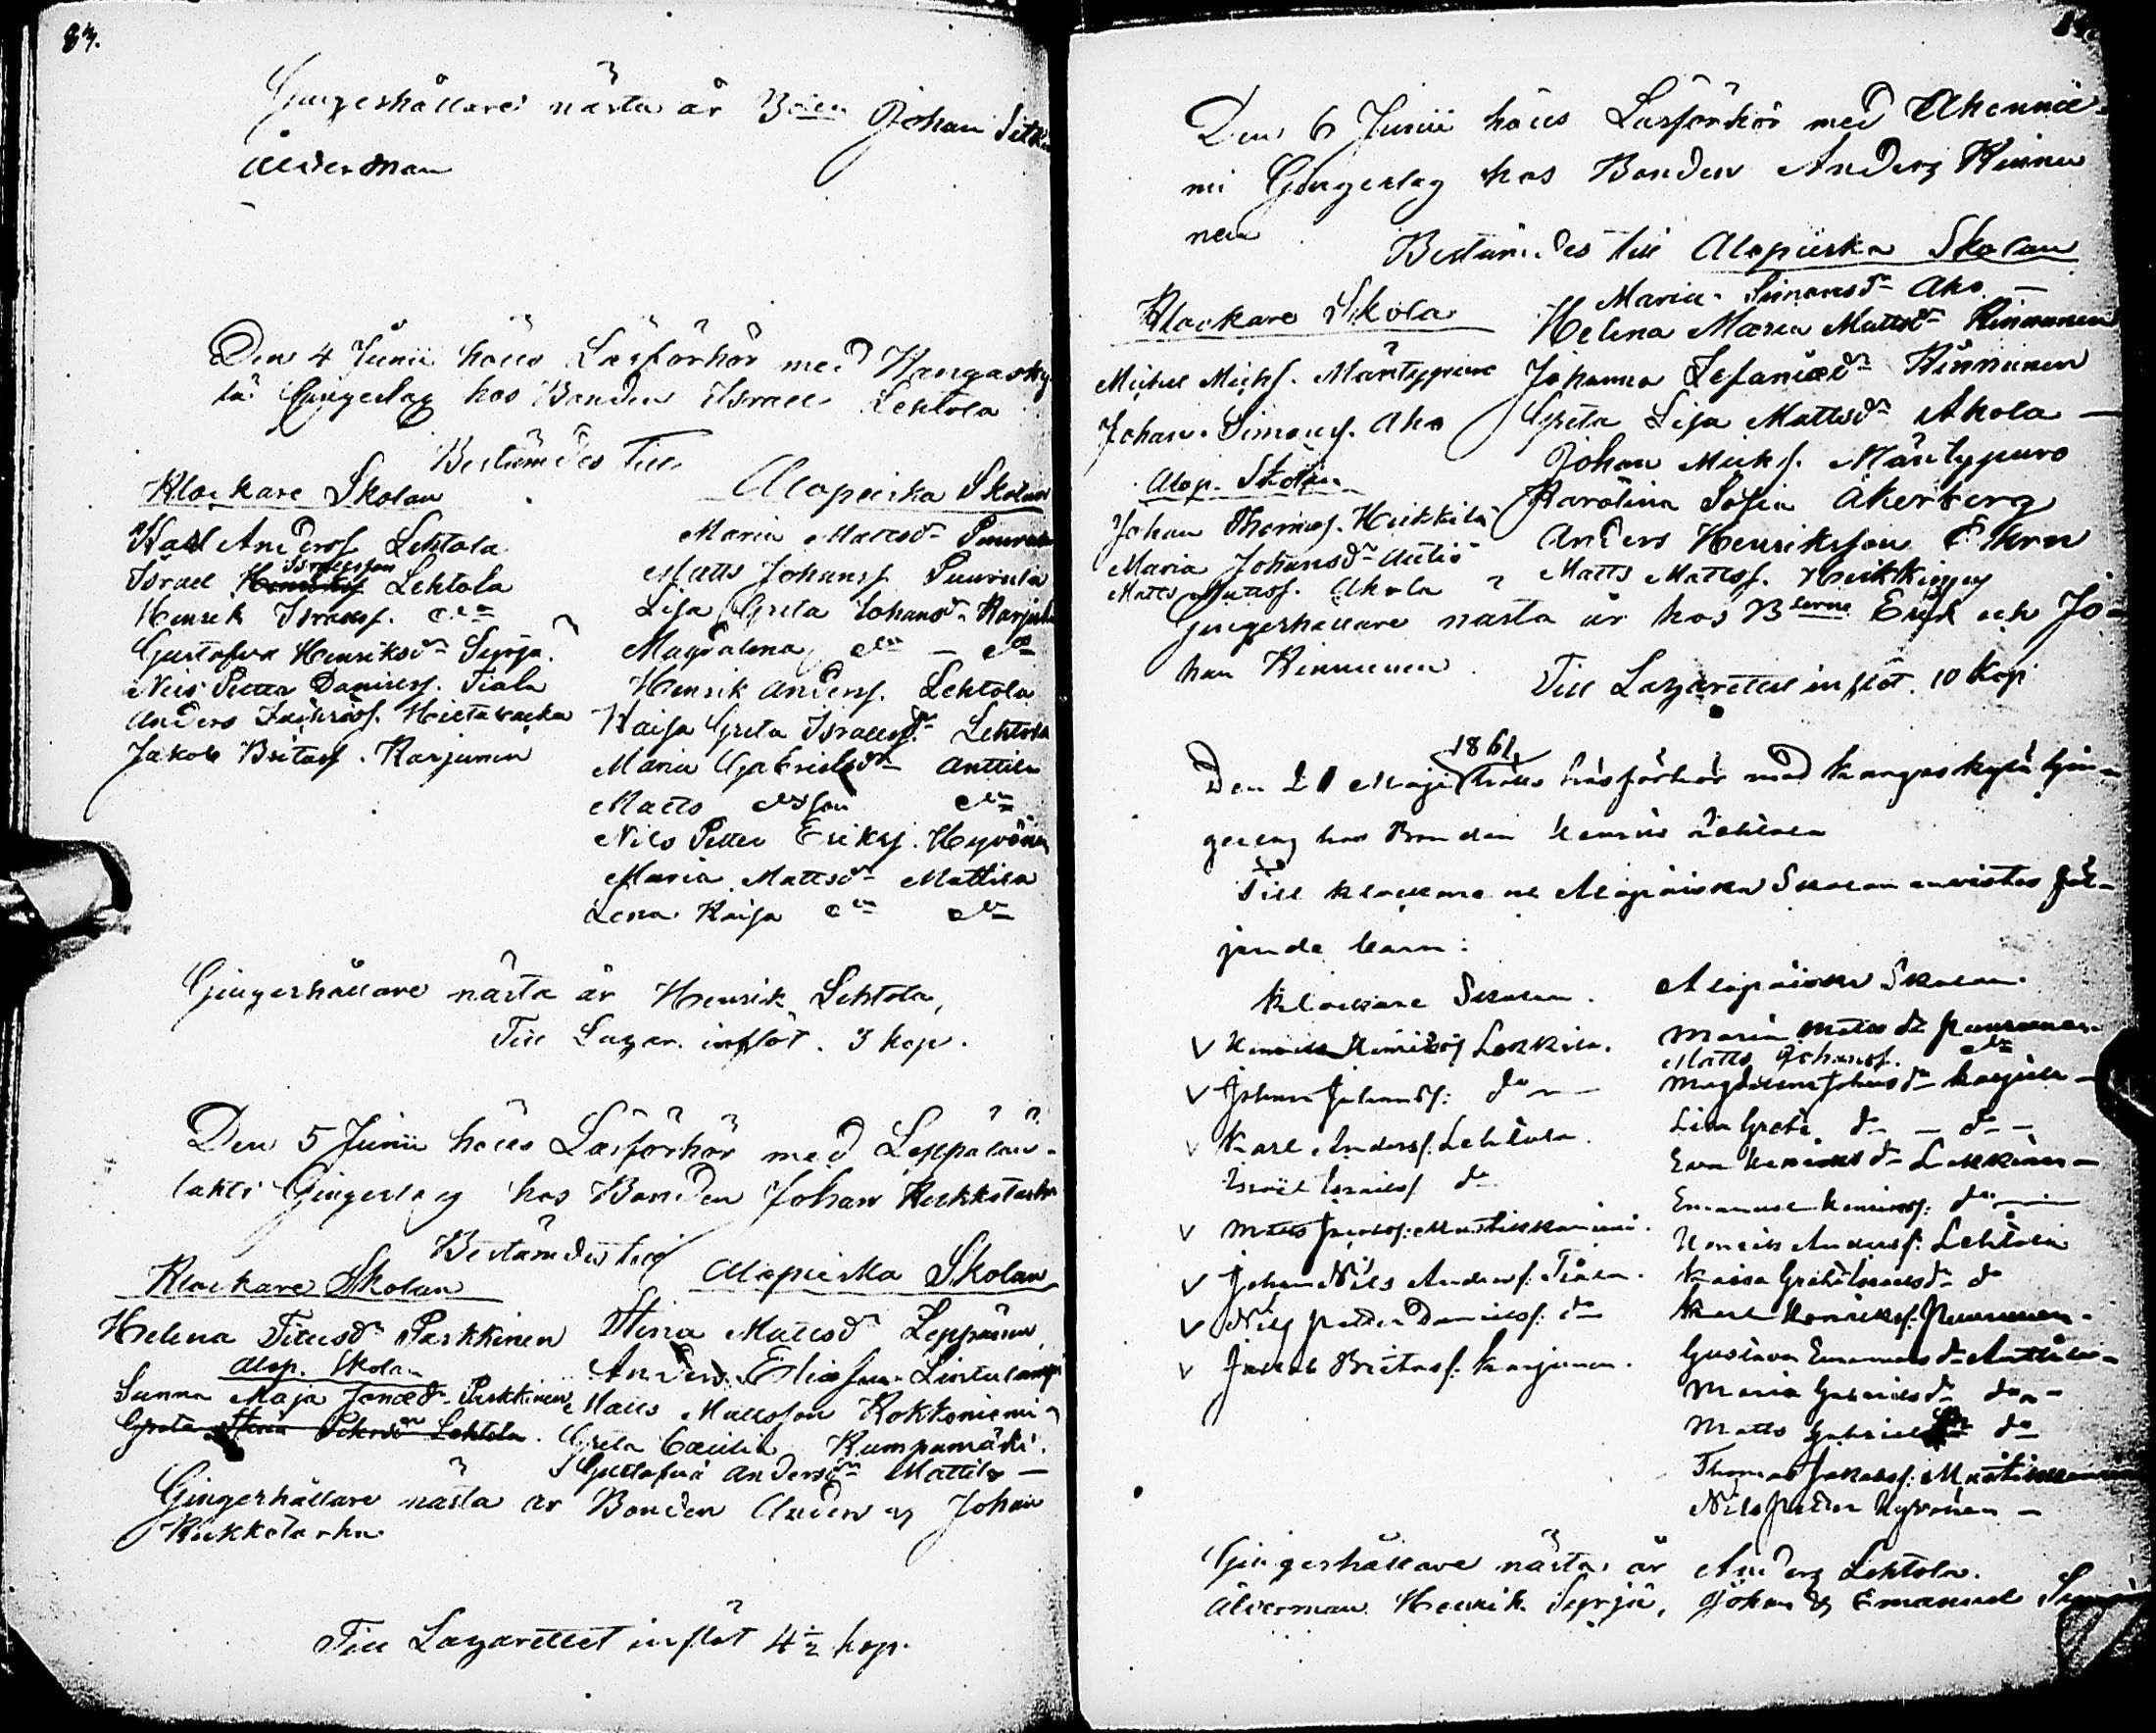 83.
Gingerhållare nästa år Bden Johan
Ålderman
Den 4 Junii hölls Läsförhör med Kangasky-
lä Gingerlag hos Bonden Israel Lehtola
Bestämdes till
Klockare Skolan
Karl Andersf. Lehtola
Israelsson
Israel Lehtola
Henrik Israelsf. do
Gustafva Henriksdr Syrjä.
Nils Petter Danielsf. Tiala
Anders Hietavaeka
Jakob Britasf. Karjunen
Alapeiska Skolan
Maria Mattsdr
Matts Johansf. Puurula
Lisa Greta Johansdr
Magdalena do - do
Henrik Andersf. Lehtola
Kaisa Greta Israelsdr Lehtola
Maria Gabrielsdr Anttila
Matts do son do
Nils Petter Eriksf. Hyvönen
Maria Mattsdr Mattila
Lena Kaisa do do
Gingerhållare nästa år Henrik Lehtola,
Till Lazar. inflöt. 3 kop.
Den 5 Junii hölls Läsförhör med Leppälän-
lahti Gingerlag hos Bonden Johan
Bestämdes till
Klockare Skolan
Helena Titusdr Parkkinen
Alap. Skolan
Sanna Maja Jonædr Parkkinen
Greta Stina Lehtola.
Alapeiska Skolan
Stina Mattsdr Leppänen
Anders Eliasson Lintulampi
Matts Mattsson Kokkoniemi
Greta Cæcilia Rumpamäki.
Gustafva Andersdr Mattila -
Gingerhållare nästa år Bonden Anders och Johan
Till Lazarettet inflöt 4½ kop.
Den 6 Junii hölls Läsförhör med Ahonnie-
mi Gingerlag hos Bonden Anders Kinnu
nen
Bestämdes till Alapeiska Skolan
Klockare Skola
Michel Michf. Mäntypuro
Johan Simonsf. Aho
Alap. Skolan
Johan Thomasf. Heikkilä
Maria Johansdr Autio
Matts Mattsf. Ahola
Maria Simonsdr Aho -
Helena Maria Mattsdr Kinnunen
Johanna Stefaniædr Kinnunen
Greta Lisa Mattsdr Ahola -
Johan Mickf. Mäntypuro
Karolina Sofia Åkerberg
Anders Henriksson
Matts Mattsf. Heikkinen
Gingerhållare nästa år hos Bderne Erik och Jo-
han Kinnunen
Till Lazarettet inflöt. 10 Kop
Den 21 Maji 1861 hölls Läsförhör med Kangaskylä Gin-
gerlag hos Bonden Henrik Lehtola
Till Klockare och Alapäiska Skolan anvistes föl-
jande barn:
Klockare Skolan.
V Henrik Henriksf. Leskinen.
V Johan Johansf: do
V Karl Andersf. Lehtola.
Israel Israelsf do
V Matts Jacobsf. Mustikkaniemi.
V Johan Nils Andersf. Tiala.
V Nils Petter Danielsf. do
V Jakob Britasf. Karjunen.
Alapäiska Skolan.
Maria Mattsdr
Matts Johansf. do
Magdalena Johansdr Karjula -
Lisa Greta do - do -
Eva Henriksdr
Emanuel Henriksf. do
Henrik Andersf. Lehtola
Kaisa Greta Israelsdr do
Karl Henriksf.
Gustava Emanuelsdr Anttila -
Maria Gabrielsdr do -
Matts Gabriels do
Thomas Jakobsf. Mustikkaniemi
Nils Petter Hyvönen -
Gingerhållare nästa år Anders Lehtola.
Ålderman Henrik Syrjä, Johan & Emanuel